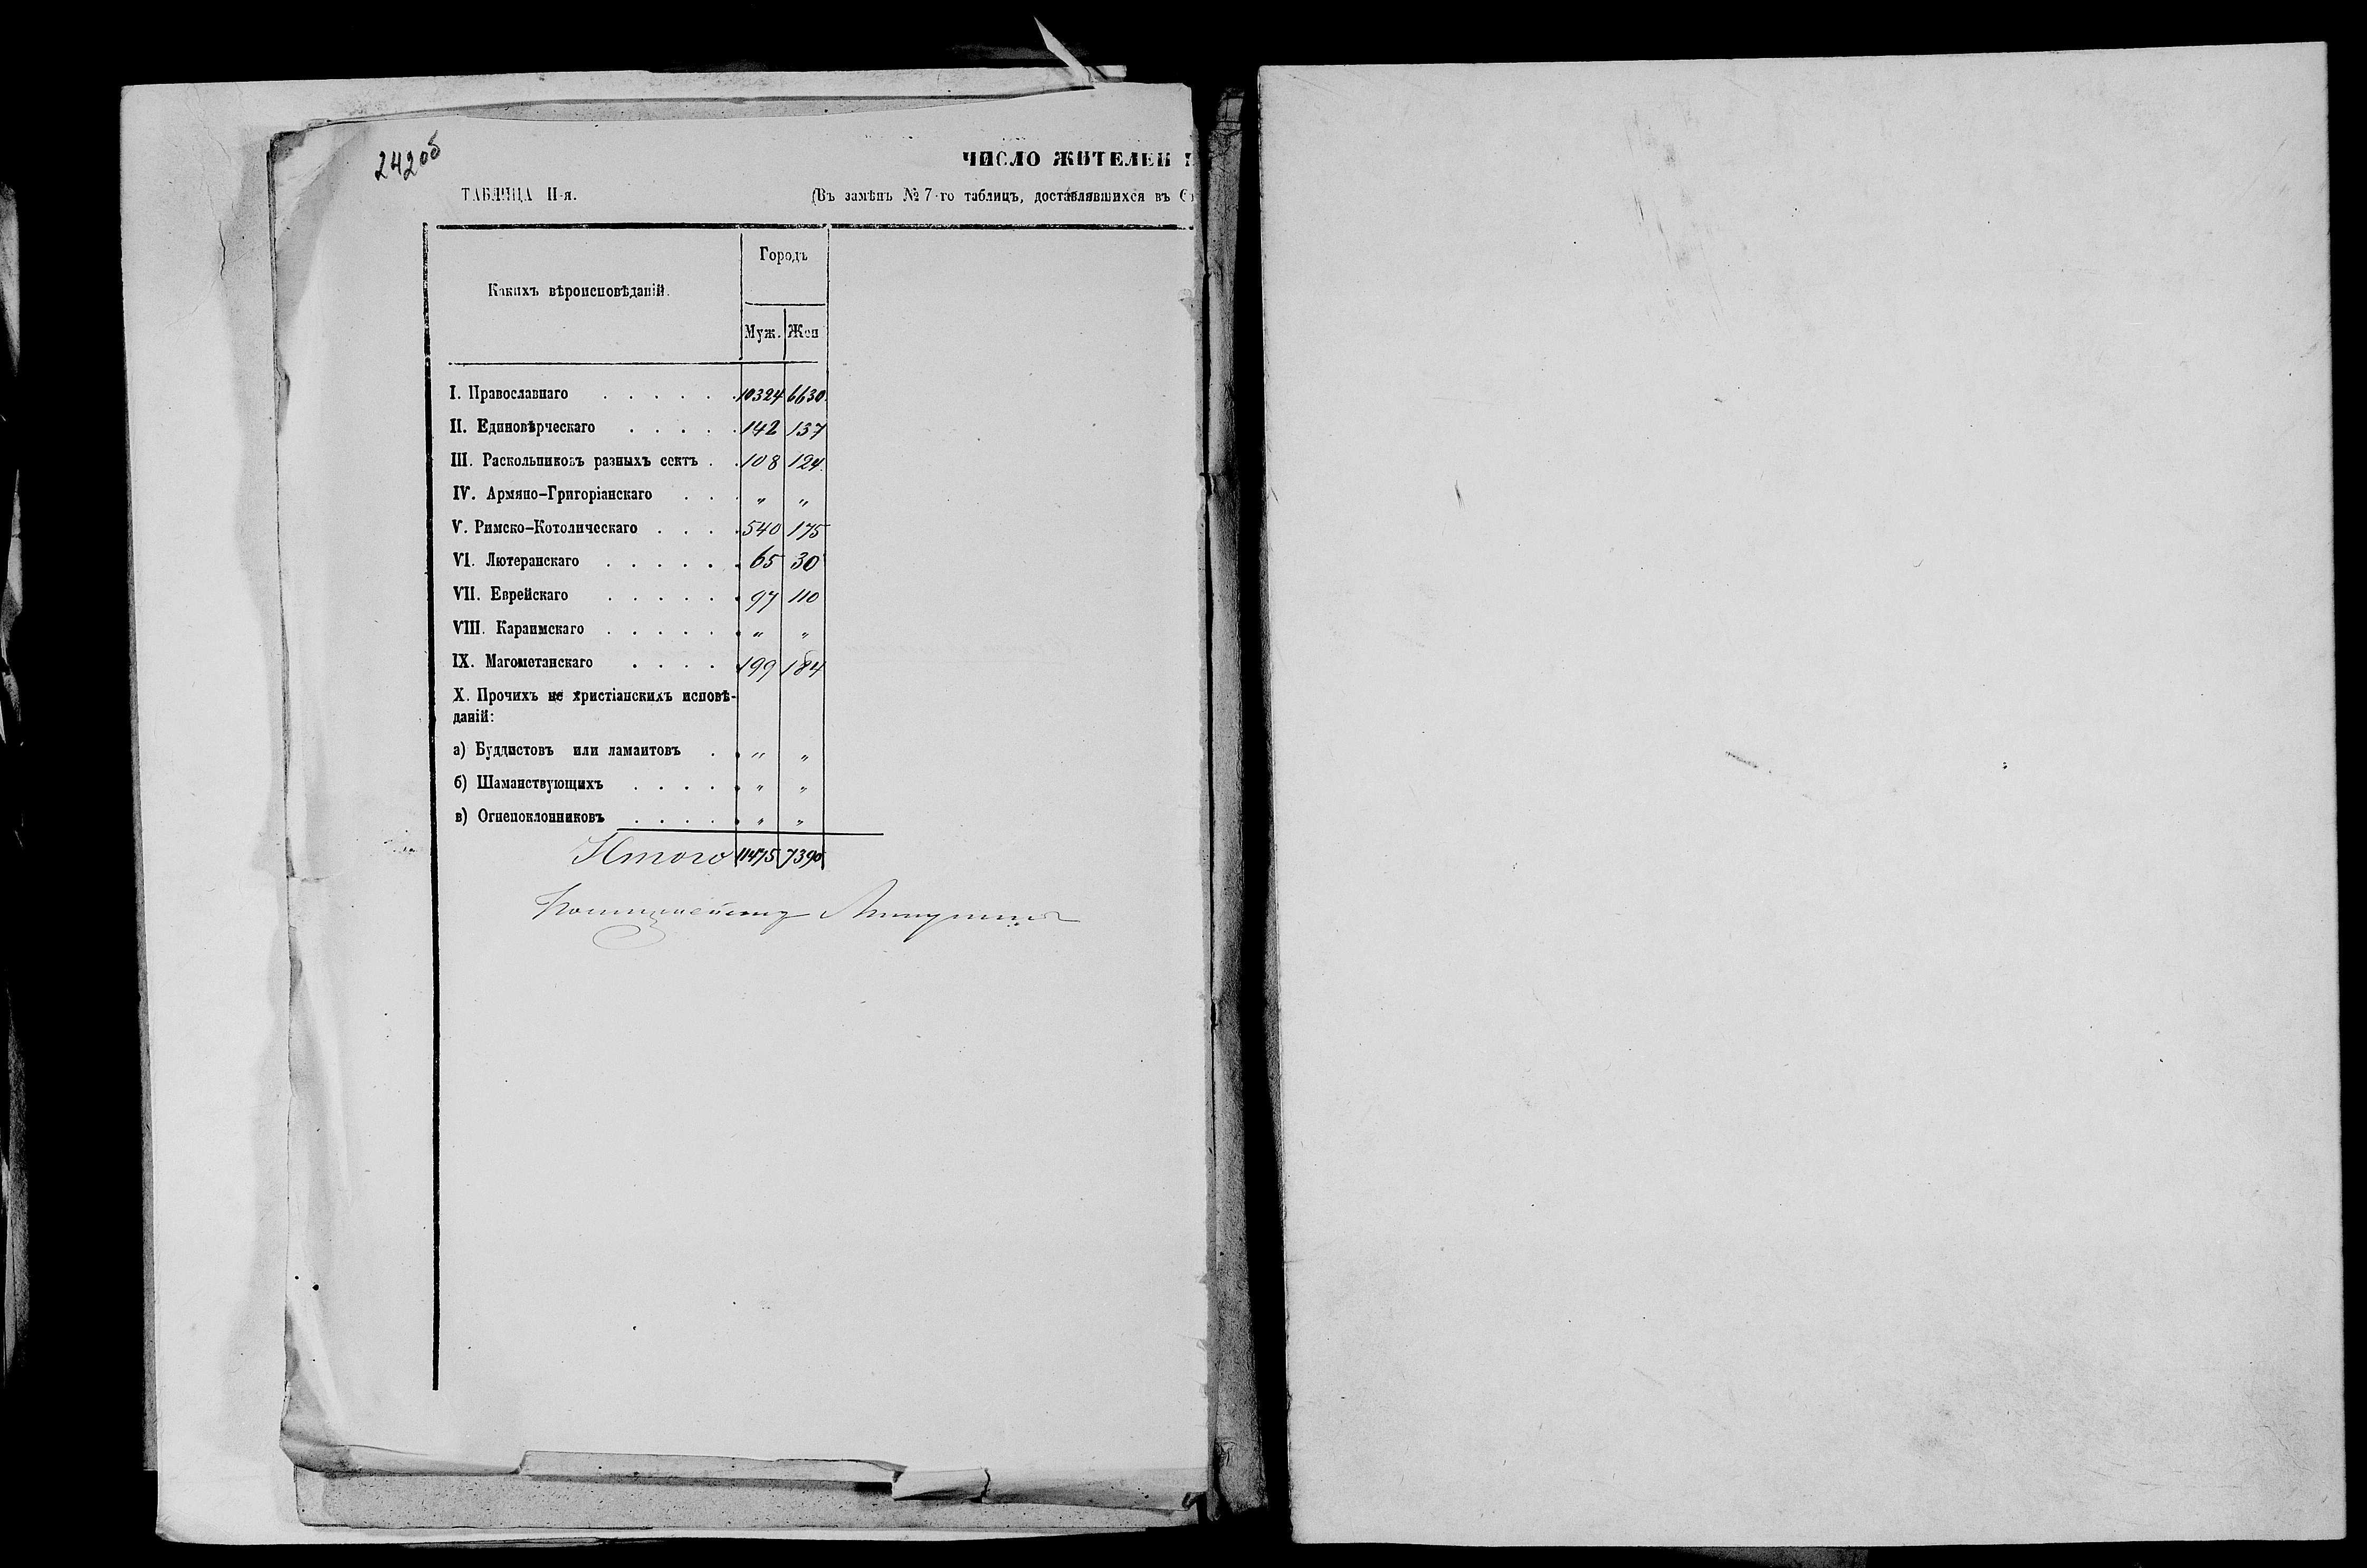 242об
ЧИСЛО ЖИТЕЛЕЙ
ТАБЛИЦА II-я.
(Въ замѣнъ №7-го таблицъ, доставлявшихся въ
Какихъ вѣроисповѣданій.
Городъ
Муж. Жен
I. Православнаго . . . . . . 10324 6630
II. Единовѣрческаго . . . . . 142 137
III. Раскольниковъ разныхъ сектъ . . 108 124
IV. Армяно-Григоріанскаго . . . „ „
V. Римско-Котолическаго . . . . 540 175
VI. Лютеранскаго . . . . . . 65 30
VII. Еврейскаго . . . . . . 97 110
VIII. Караимскаго . . . . . . „ „
IX. Магометанскаго . . . . . 199 184
X. Прочихъ не христіанскихъ исповѣ-
даній:
а) Буддистовъ или ламаитовъ . . „ „
б) Шаманствующихъ . . . . . „ „
в) Огнепоклонниковъ . . . . . „ „
Итого 11475 7390
Полицмейстеръ